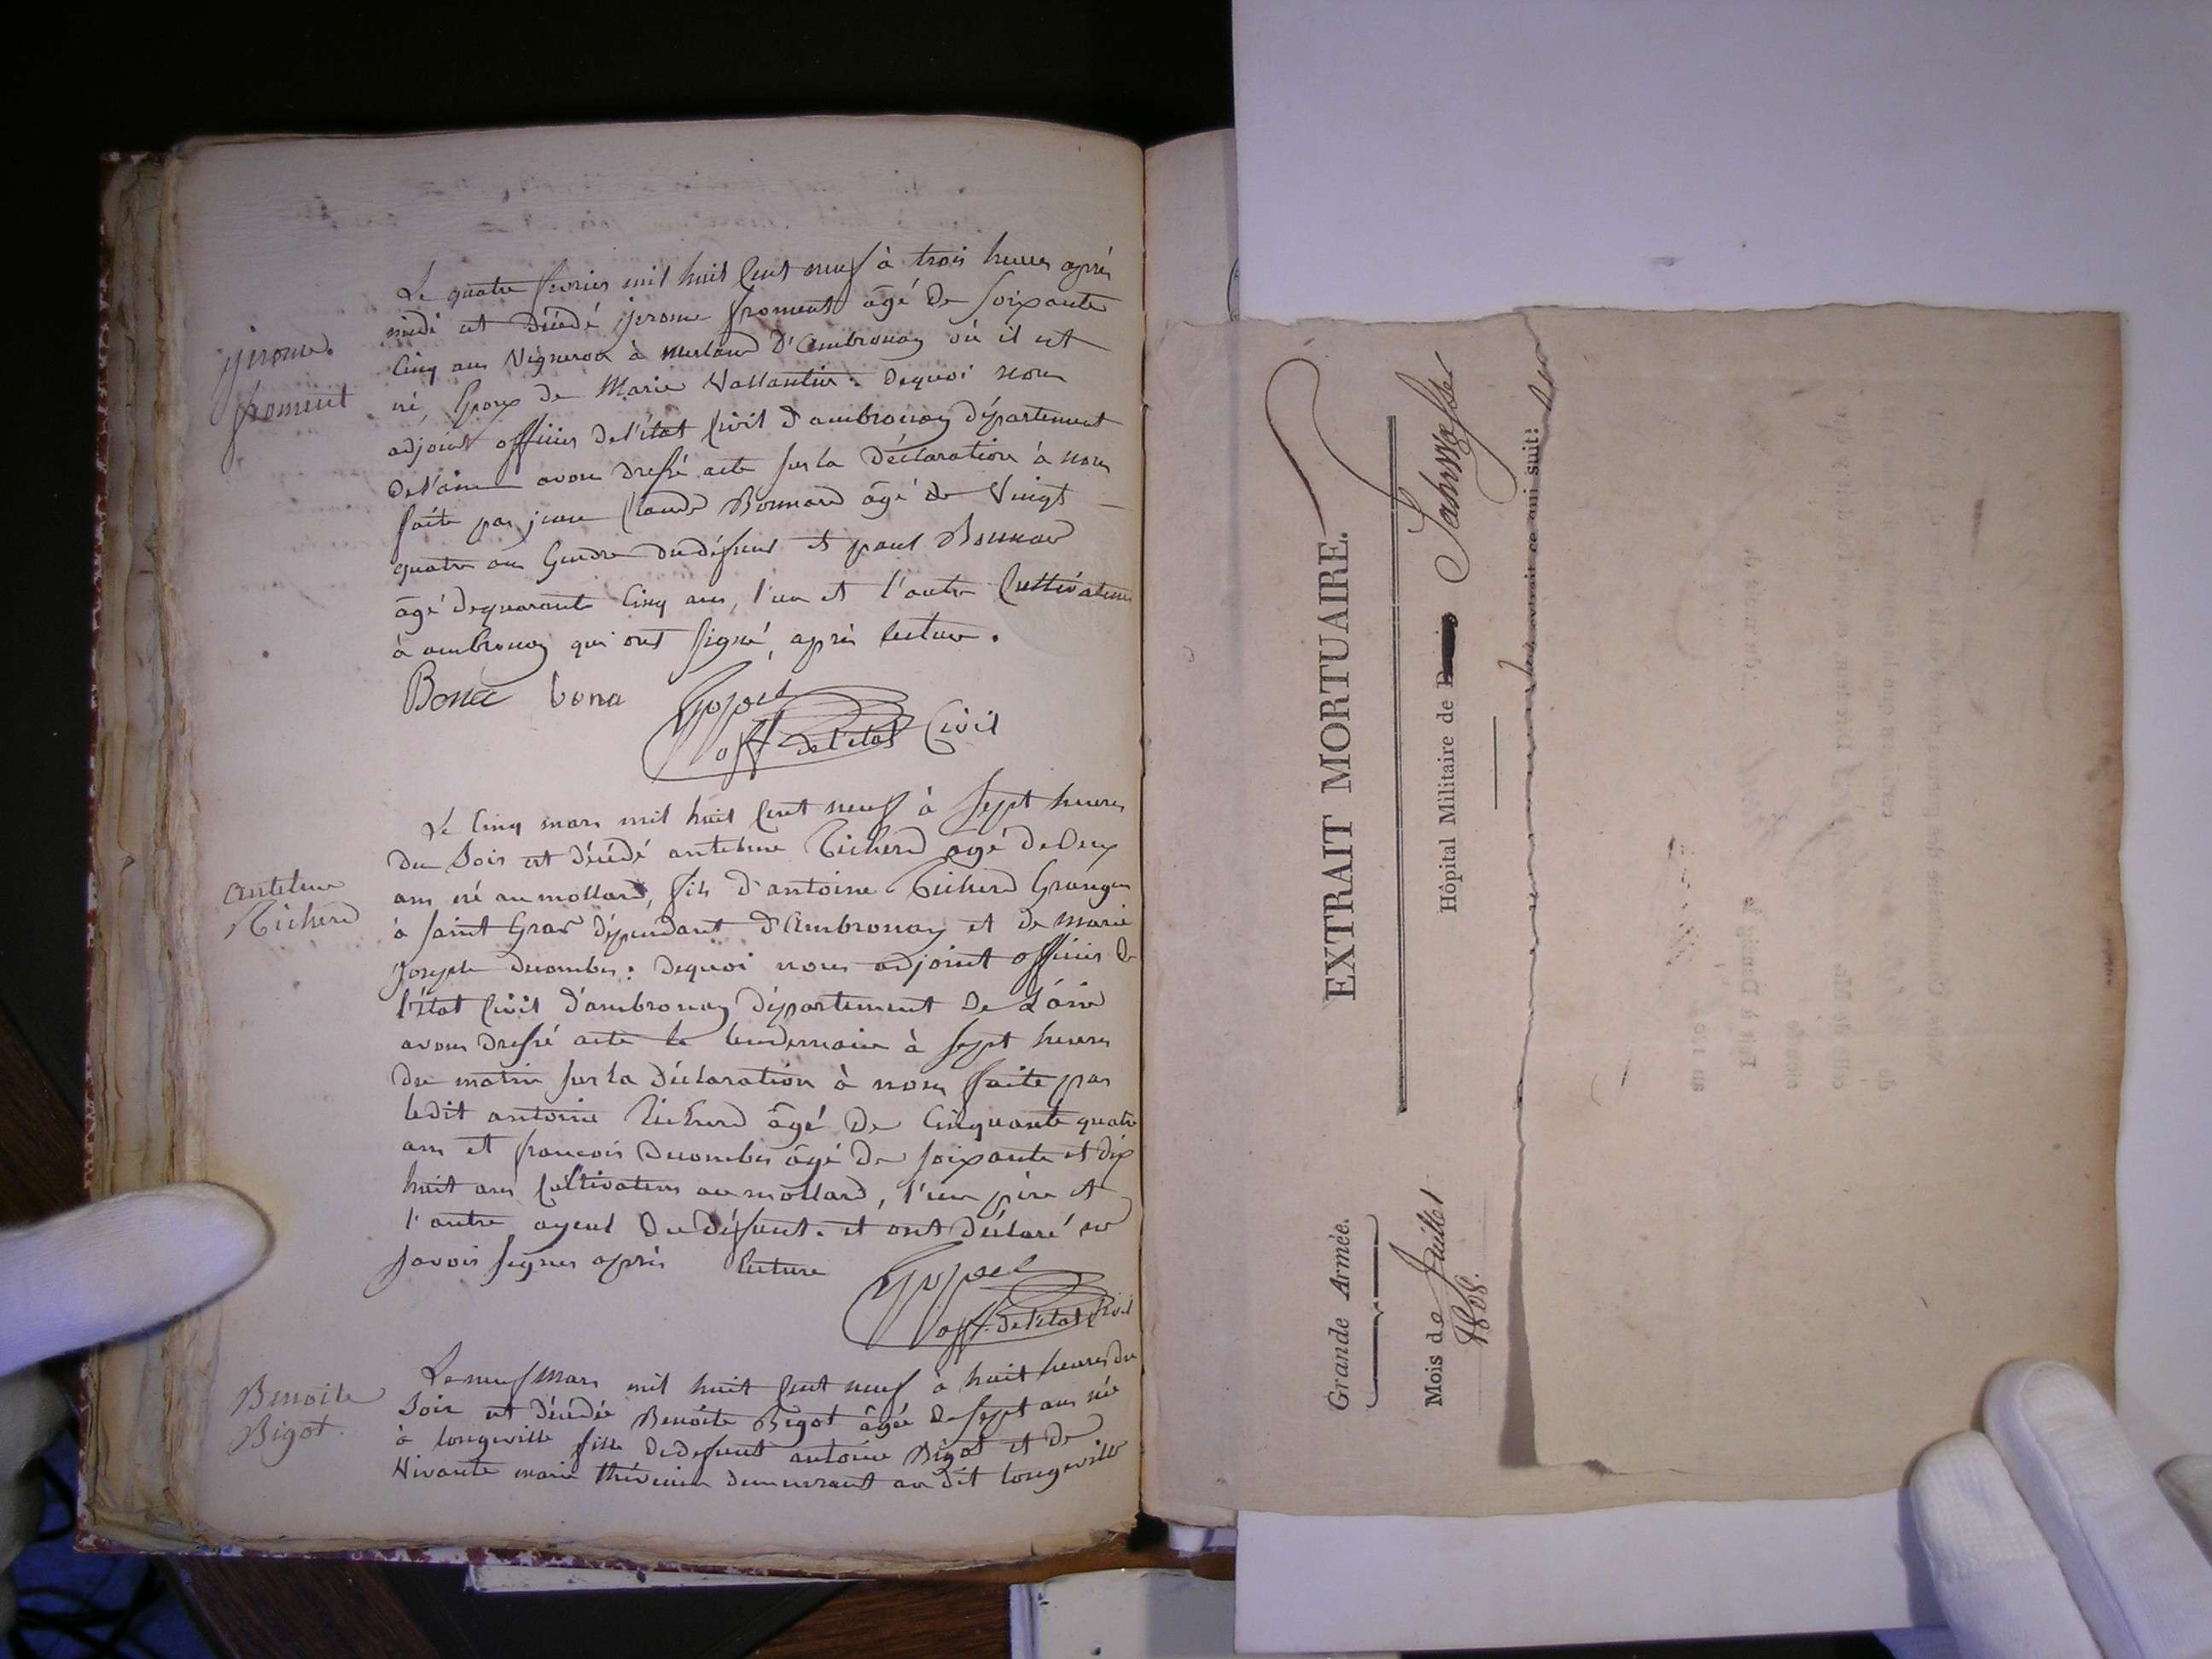 Le quatre fevrier mil huit Cent neuf à trois heures après
midi est décédé jerome froment âgé de soixante
Cinq ans Vigneron à merland d'Ambronay où il est
né, Epoux de Marie Vallantin. dequoi nous
adjoint officier del'état Civil d'ambronay département
del'ain avons dressé acte sur la déclaration à nous
faite par jean Claude Bonnard âgé de Vingt
quatre ans Gendre du défunt et paul Bonnard
âgé dequarante Cinq ans, l'un et l'autre Cultivateurs
à ambronay qui ont signé, après lecture.
jerome
froment
bona
off. de l'état Civil
Le Cinq mars mil huit Cent neuf à sept heures
du soir est décédé antelme Richerd âgé de deux
ans né au mollard, fils d'antoine Richerd Granger
à saint Gras dépendant d'Ambronay et de marie
joseph decombes: dequoi nous adjoint officier de
l'état Civil d'ambronay département de L'ain
avons dressé acte le lendemain à sept heures
du matin sur la déclaration à nous faite par
ledit antoine Richerd âgé de Cinquante quatre
ans et francois decombes âgé de soixante et dix
huit ans Cultivateurs au mollard, l'un père et
l'autre ayeul du défunt. et ont déclaré ne
savoir signer après lecture
antelme
Richerd
off. de l'état Civil
Le neuf mars mil huit Cent neuf à huit heures du
soir est décédée Benoite Bigot âgée de sept ans née
à longeville fille dedefunt antoine Bigot et de
Vivante marie thévenin demeurant au dit longeville
Benoite
Bigot.
Grande Armée.
EXTRAIT MORTUAIRE.
Mois de Juillet
1808.
Hôpital Militaire de